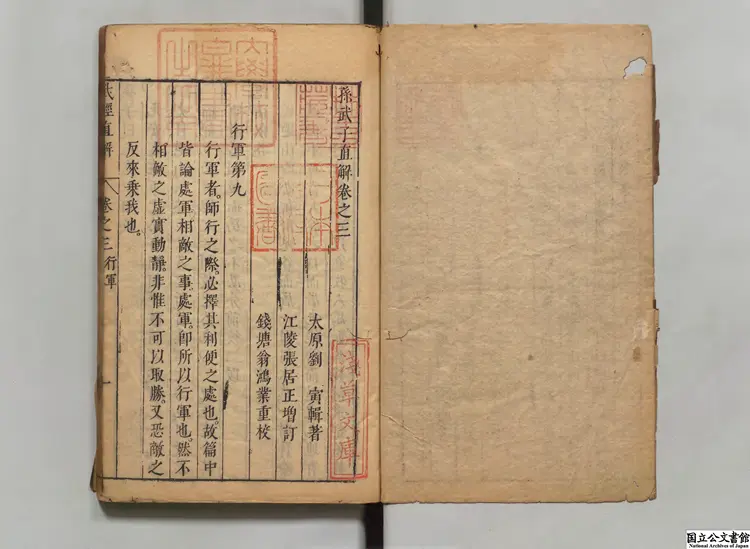 孫武子直解卷之三
太原劉　寅輯著
江陵張居正增訂
錢塘翁鴻業重校
行軍第九
行軍者。師行之際。必擇其利便之處也。故篇中
皆論處軍相敵之事。處軍。卽所以行軍也。然不
相敵之虛實動靜。非惟不可以取勝。又恐敵之
反來乘我也。
武經直解
卷之三 行軍
一
淺草文庫
国立公文書館
National Archives of Japan